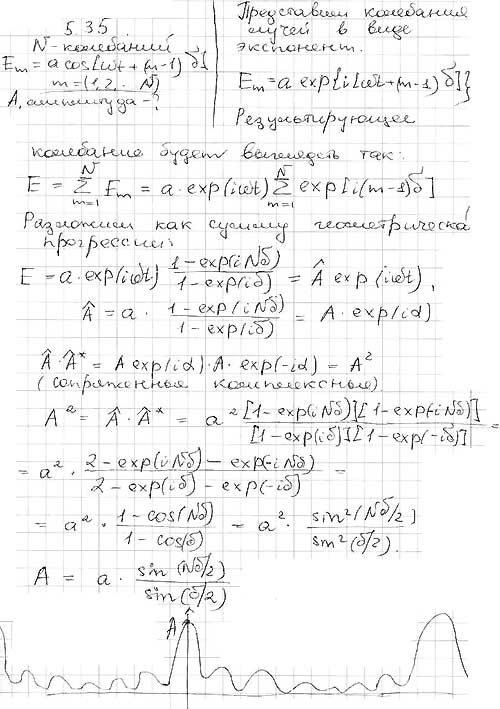 5.35.
N-колебаний
E_m = a cos[ωt+(m-1)δ]
m=(1,2.. N)
A, амплитуда -?
Представим колебания
лучей в виде
экспонент.
E_m = a exp{i[ωt+(m-1)δ]}
Результирующее
колебание будет выглядеть так:
E = Σ_{m=1}^{N} E_m = a·exp(iωt) Σ_{m=1}^{N} exp[i(m-1)δ]
Разложим как сумму геометрическа
прогрессии:
E = a·exp(iωt) (1-exp(iNδ))/(1-exp(iδ)) = Â exp(iωt),
Â = a· (1-exp(iNδ))/(1-exp(iδ)) = A·exp(iα)
Â·Â* = A exp(iα)·A·exp(-iα) = A²
(сопряженные комплексные)
A² = Â·Â* = a² [1-exp(iNδ)][1-exp(-iNδ)]/[1-exp(iδ)][1-exp(-iδ)] =
= a²· (2-exp(iNδ)-exp(-iNδ))/(2-exp(iδ)-exp(-iδ)) =
= a²· (1-cos(Nδ))/(1-cos(δ)) = a²· sin²(Nδ/2)/sin²(δ/2).
A = a· sin(Nδ/2)/sin(δ/2)
Â